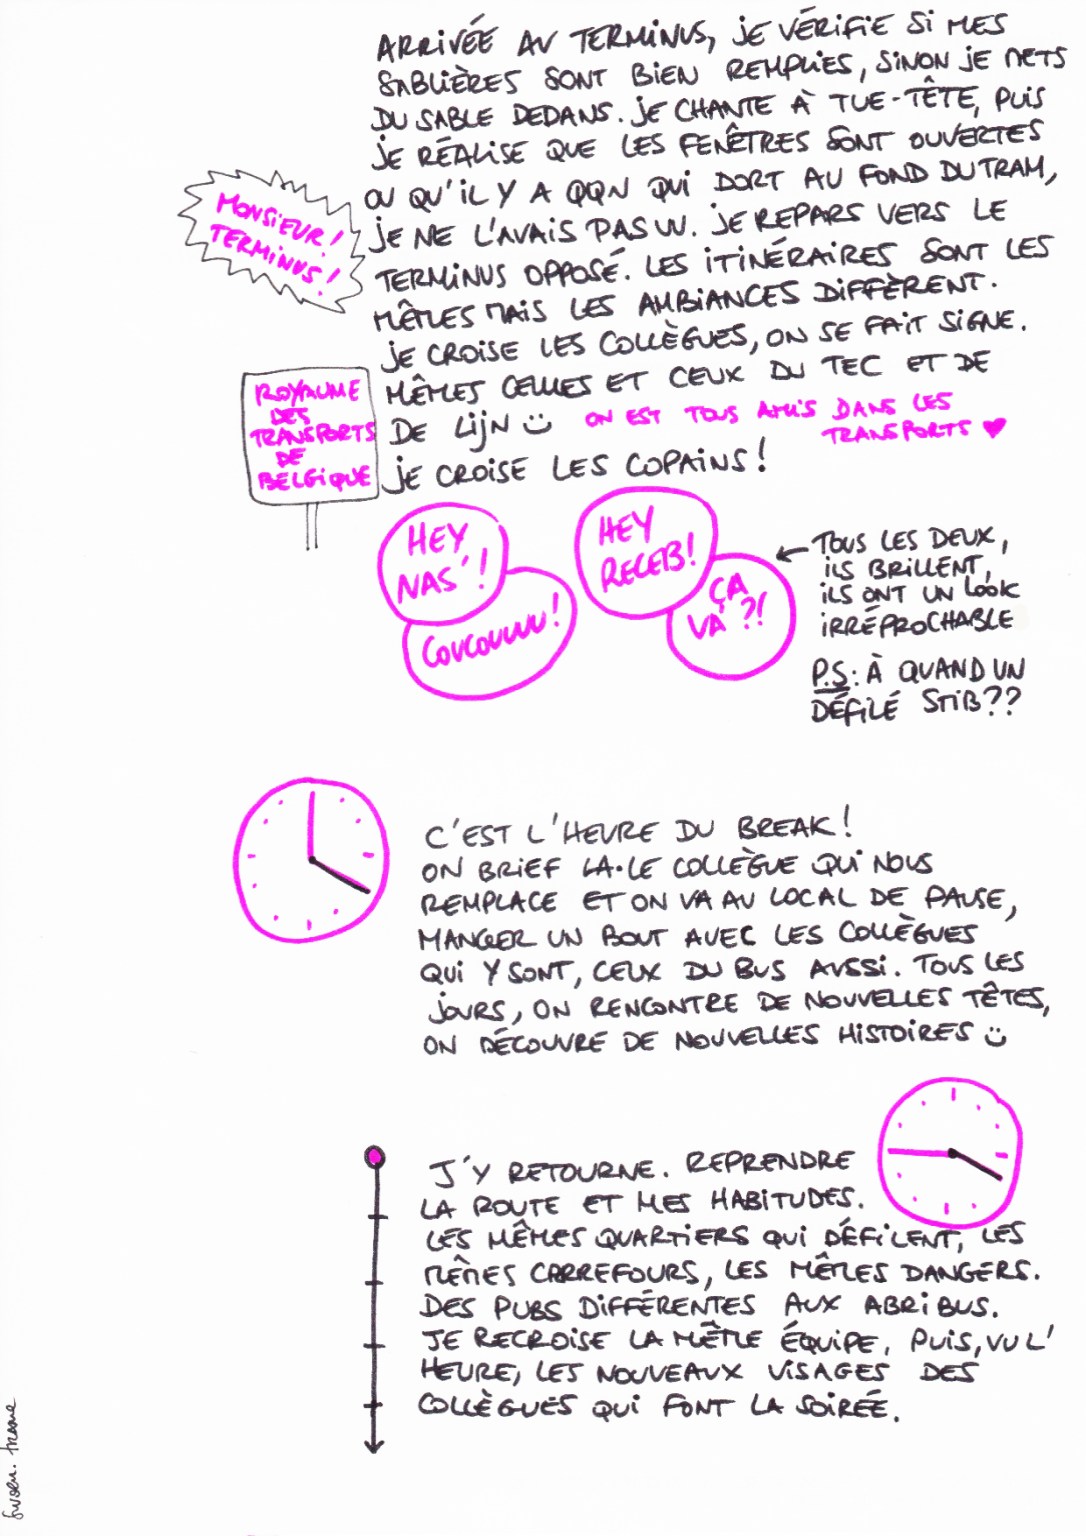 ARRIVÉE AU TERMINUS, JE VÉRIFIE SI MES
SABLIÈRES SONT BIEN REMPLIES, SINON JE METS
DU SABLE DEDANS. JE CHANTE À TUE-TÊTE, PUIS
JE RÉALISE QUE LES FENÊTRES SONT OUVERTES
OU QU'IL Y A QQN QUI DORT AU FOND DU TRAM,
JE NE L'AVAIS PAS VU. JE REPARS VERS LE
TERMINUS OPPOSÉ. LES ITINÉRAIRES SONT LES
MÊMES MAIS LES AMBIANCES DIFFÈRENT.
JE CROISE LES COLLÈGUES, ON SE FAIT SIGNE.
MÊMES CELLES ET CEUX DU TEC ET DE
DE LIJN ON EST TOUS AMIS DANS LES
TRANSPORTS ♥
JE CROISE LES COPAINS !
MONSIEUR !
TERMINUS !
ROYAUME
DES
TRANSPORTS
DE
BELGIQUE
HEY
NAS' !
COUCOUUUU !
HEY
RECEB !
ÇA
VA ?!
← TOUS LES DEUX,
ILS BRILLENT,
ILS ONT UN LOOK
IRRÉPROCHABLE
P.S : À QUAND UN
DÉFILÉ STIB ??
C'EST L'HEURE DU BREAK !
ON BRIEF LA·LE COLLÈGUE QUI NOUS
REMPLACE ET ON VA AU LOCAL DE PAUSE,
MANGER UN BOUT AVEC LES COLLÈGUES
QUI Y SONT, CEUX DU BUS AUSSI. TOUS LES
JOURS, ON RENCONTRE DE NOUVELLES TÊTES,
ON DÉCOUVRE DE NOUVELLES HISTOIRES
J'Y RETOURNE. REPRENDRE
LA ROUTE ET MES HABITUDES.
LES MÊMES QUARTIERS QUI DÉFILENT, LES
MÊMES CARREFOURS, LES MÊMES DANGERS.
DES PUBS DIFFÉRENTES AUX ABRIBUS.
JE RECROISE LA MÊME ÉQUIPE, PUIS, VU L'
HEURE, LES NOUVEAUX VISAGES DES
COLLÈGUES QUI FONT LA SOIRÉE.